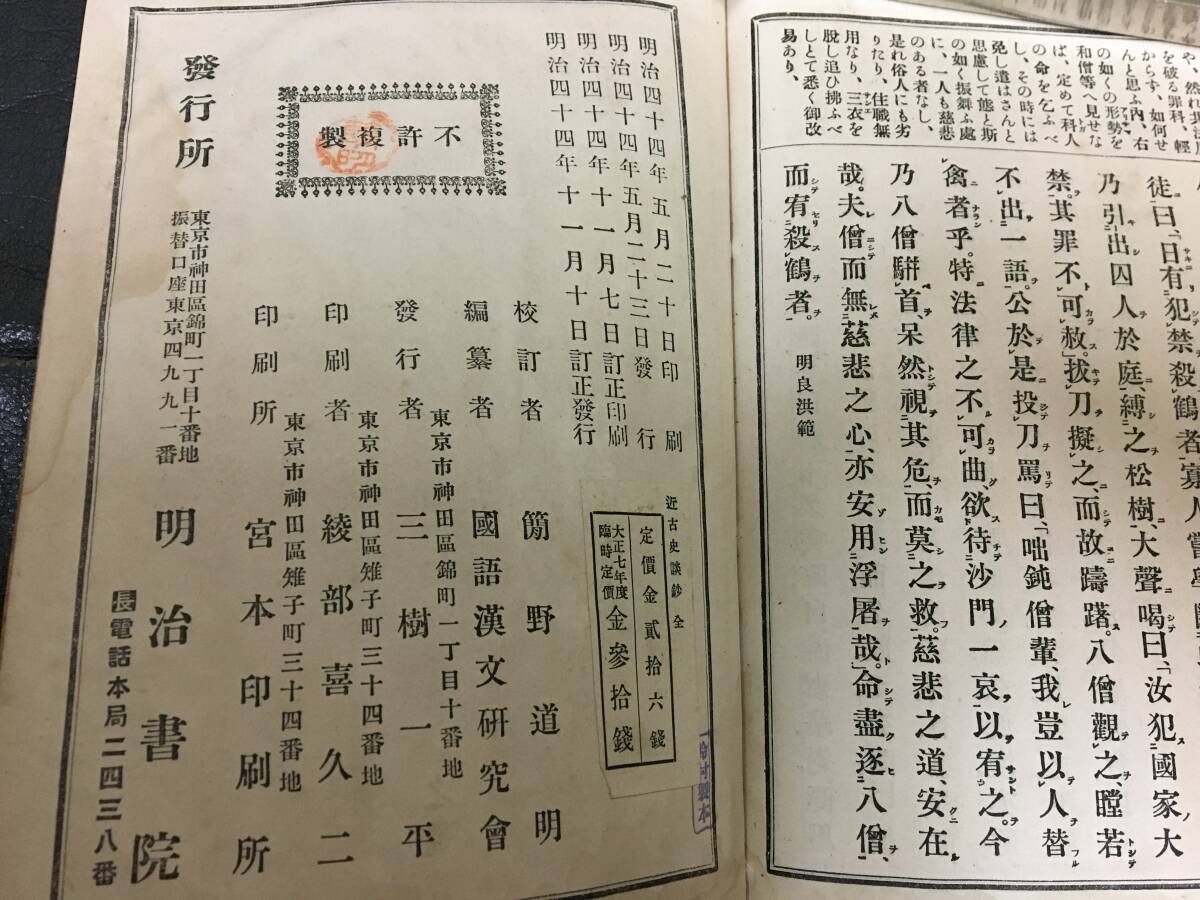 や、然れ共、
を破る罪科、輕
からず、如何せ
んと思ふ内、右
の如くの形勢を
和僧等へ見せな
ば、定めて科人
の命を乞ふべ
し、その時には
免し遣はさんと
思慮して態と斯
の如く振舞ふ處
に、一人も慈悲
のある者なし、
是れ俗人にも劣
りたり、住職無
用なり、三衣を
脫し追ひ拂ふべ
しとて悉く御改
易あり、
徒曰、「日有犯禁殺鶴者、寡人
乃引出囚人於庭、縛之松樹、大聲喝曰、「汝犯國家大
禁。其罪不可赦。」拔刀擬之、而故躊躇。八僧觀之、瞠若
不出一語。公於是投刀罵曰、「咄鈍僧輩、我豈以人替
禽者乎。特法律之不可曲、欲待沙門一哀、以宥之。今
乃八僧駢首、呆然視其危、而莫之救。慈悲之道、安在
哉。夫僧而無慈悲之心、亦安用浮屠哉。」命盡逐八僧、
而宥殺鶴者。
明良洪範
明治四十四年五月二十日印刷
明治四十四年五月二十三日發行
明治四十四年十一月七日訂正印刷
明治四十四年十一月十日訂正發行
近古史談鈔 全
定價金貳拾六錢
大正七年度
臨時定價
金參拾錢
不許複製
校訂者 簡野道明
編纂者 國語漢文硏究會
東京市神田區錦町一丁目十番地
發行者 三樹一平
東京市神田區雉子町三十四番地
印刷者 綾部喜久二
東京市神田區雉子町三十四番地
印刷所 宮本印刷所
發行所
東京市神田區錦町一丁目十番地
振替口座東京四九九一番
明治書院
長電話本局二四三八番